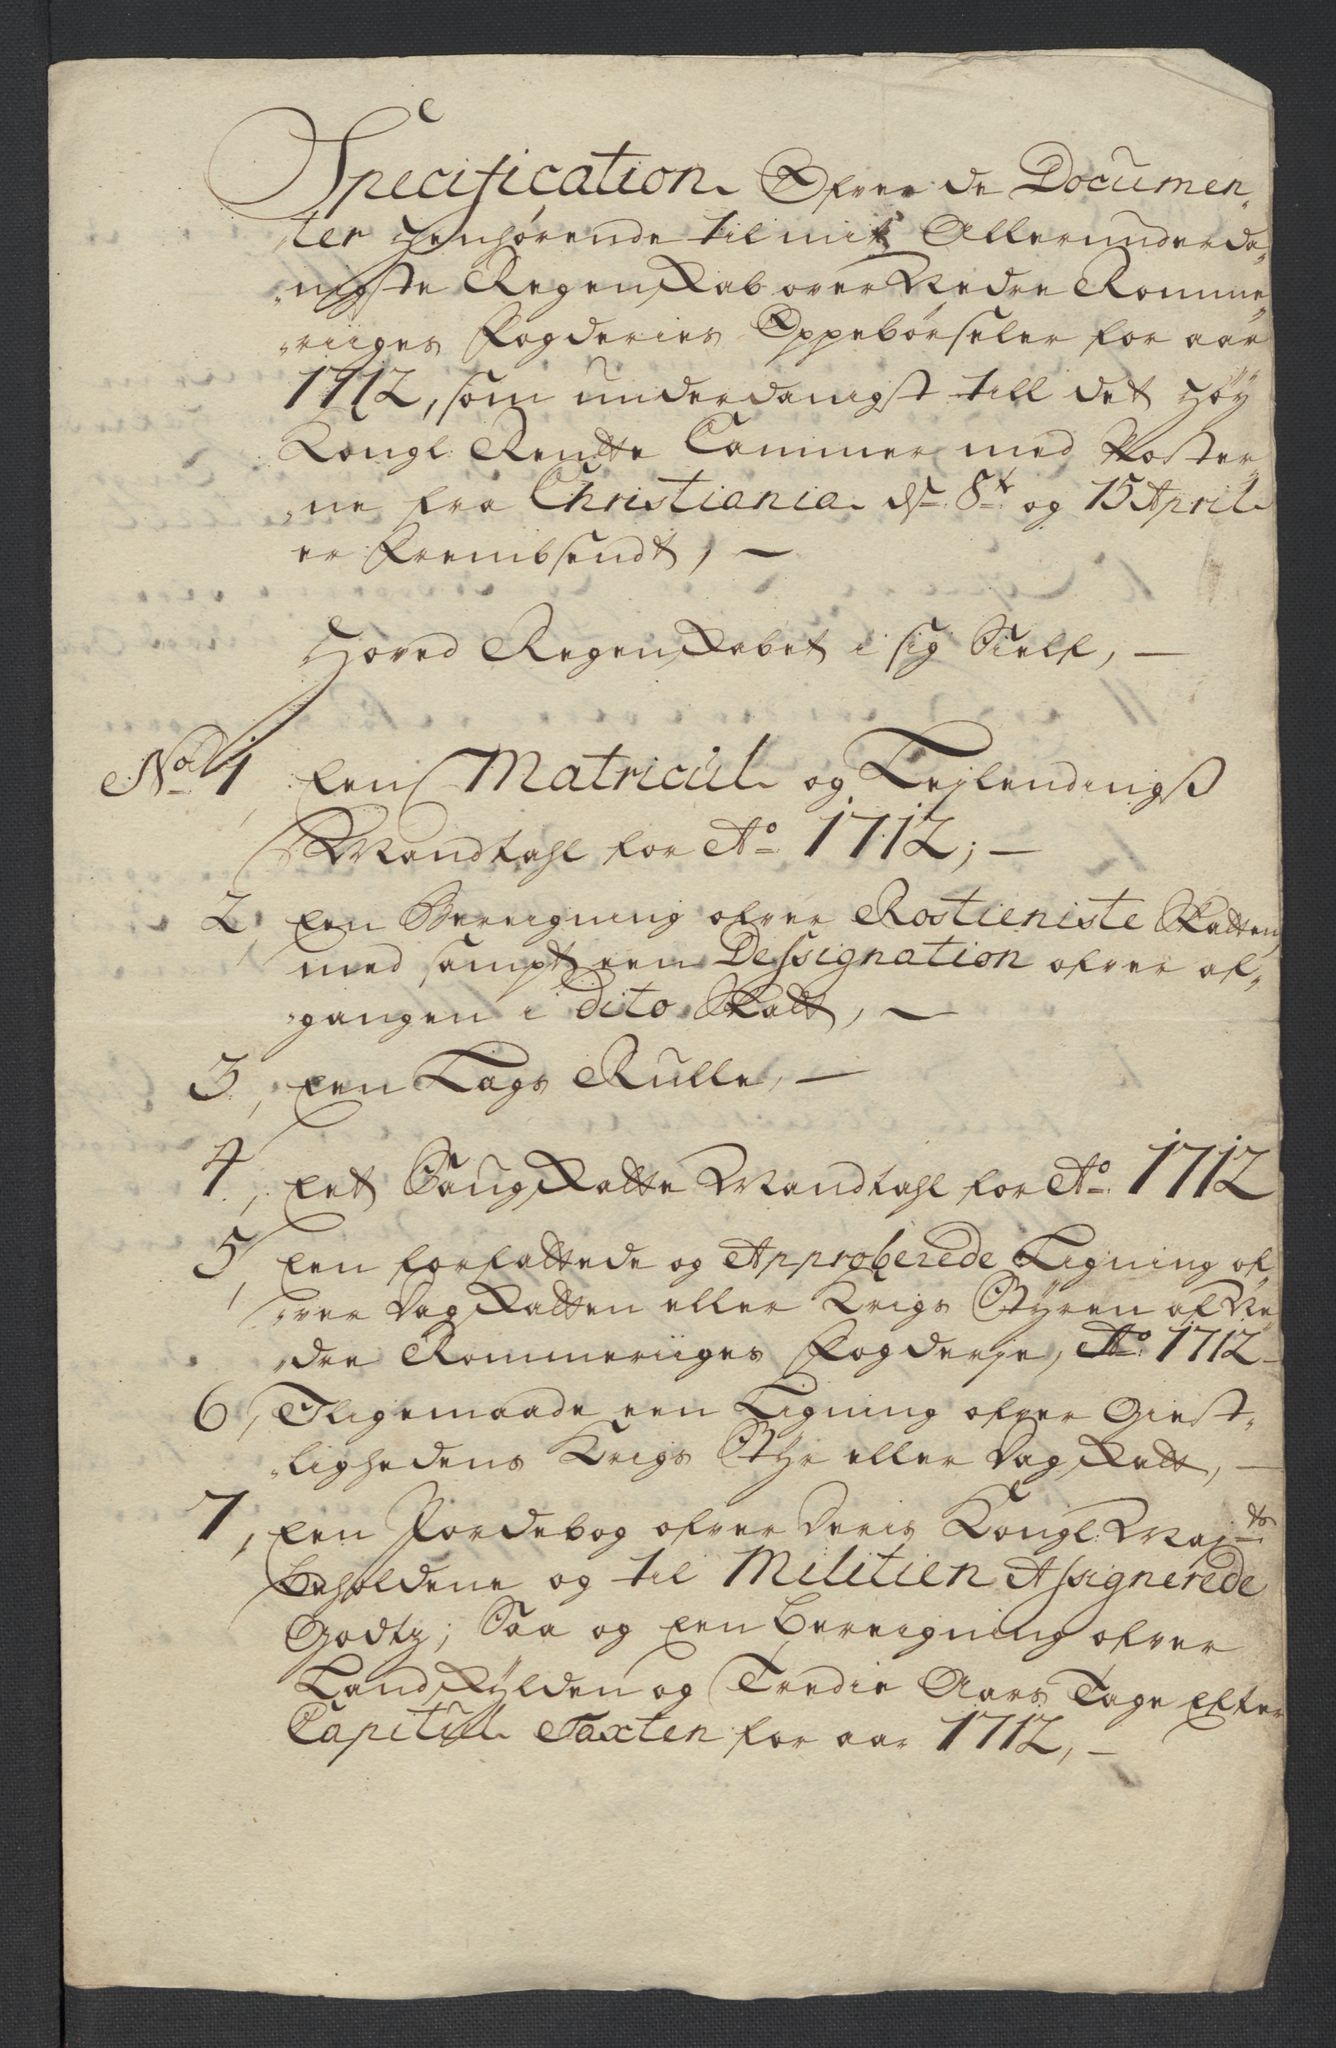 Specification Ofver de Documen„
ter henhørende til mit Allerunderda„
„nigste Regenskab over Nedre Romme„
„riiges Fogderies Oppebørseler for aar
1712, som underdanigst till det høy
Kongl: Rendte Cammer med Poster„
„ne fra Christiania ds: 8t: og 15 April
er Frembsendt, —
Hoved Regenskabet i sig Sielf, —
No: 1, Een Matricul og Leylendingß
Mandtahl for Ao: 1712; —
2, Een Bereigning ofver Rostieniste Skatten,
med sampt een Dessignation ofver af„
„gangen i dito Skatt, —
3, Een Lags Rulle, —
4, Eet Saugskatte Mandtahl for Ao: 1712
5, Een forfattede og Approberede Ligning of„
„ver Dagskatten eller Krigs Styren af Ne„
„dre Rommeriiges Fogderie, Ao: 1712 —
6, Iligemaade een Ligning ofver Giest„
„lighedens Krigs Styr eller Dagskatt, —
7, Een Jordebog ofver Deris Kongl: Mayts:
beholdene og til Militien Assignerede
Godtz; Saa og Een bereigning ofver
Landskylden og Tredie Aars Tage Efter
Capitul Taxten for aar 1712, —